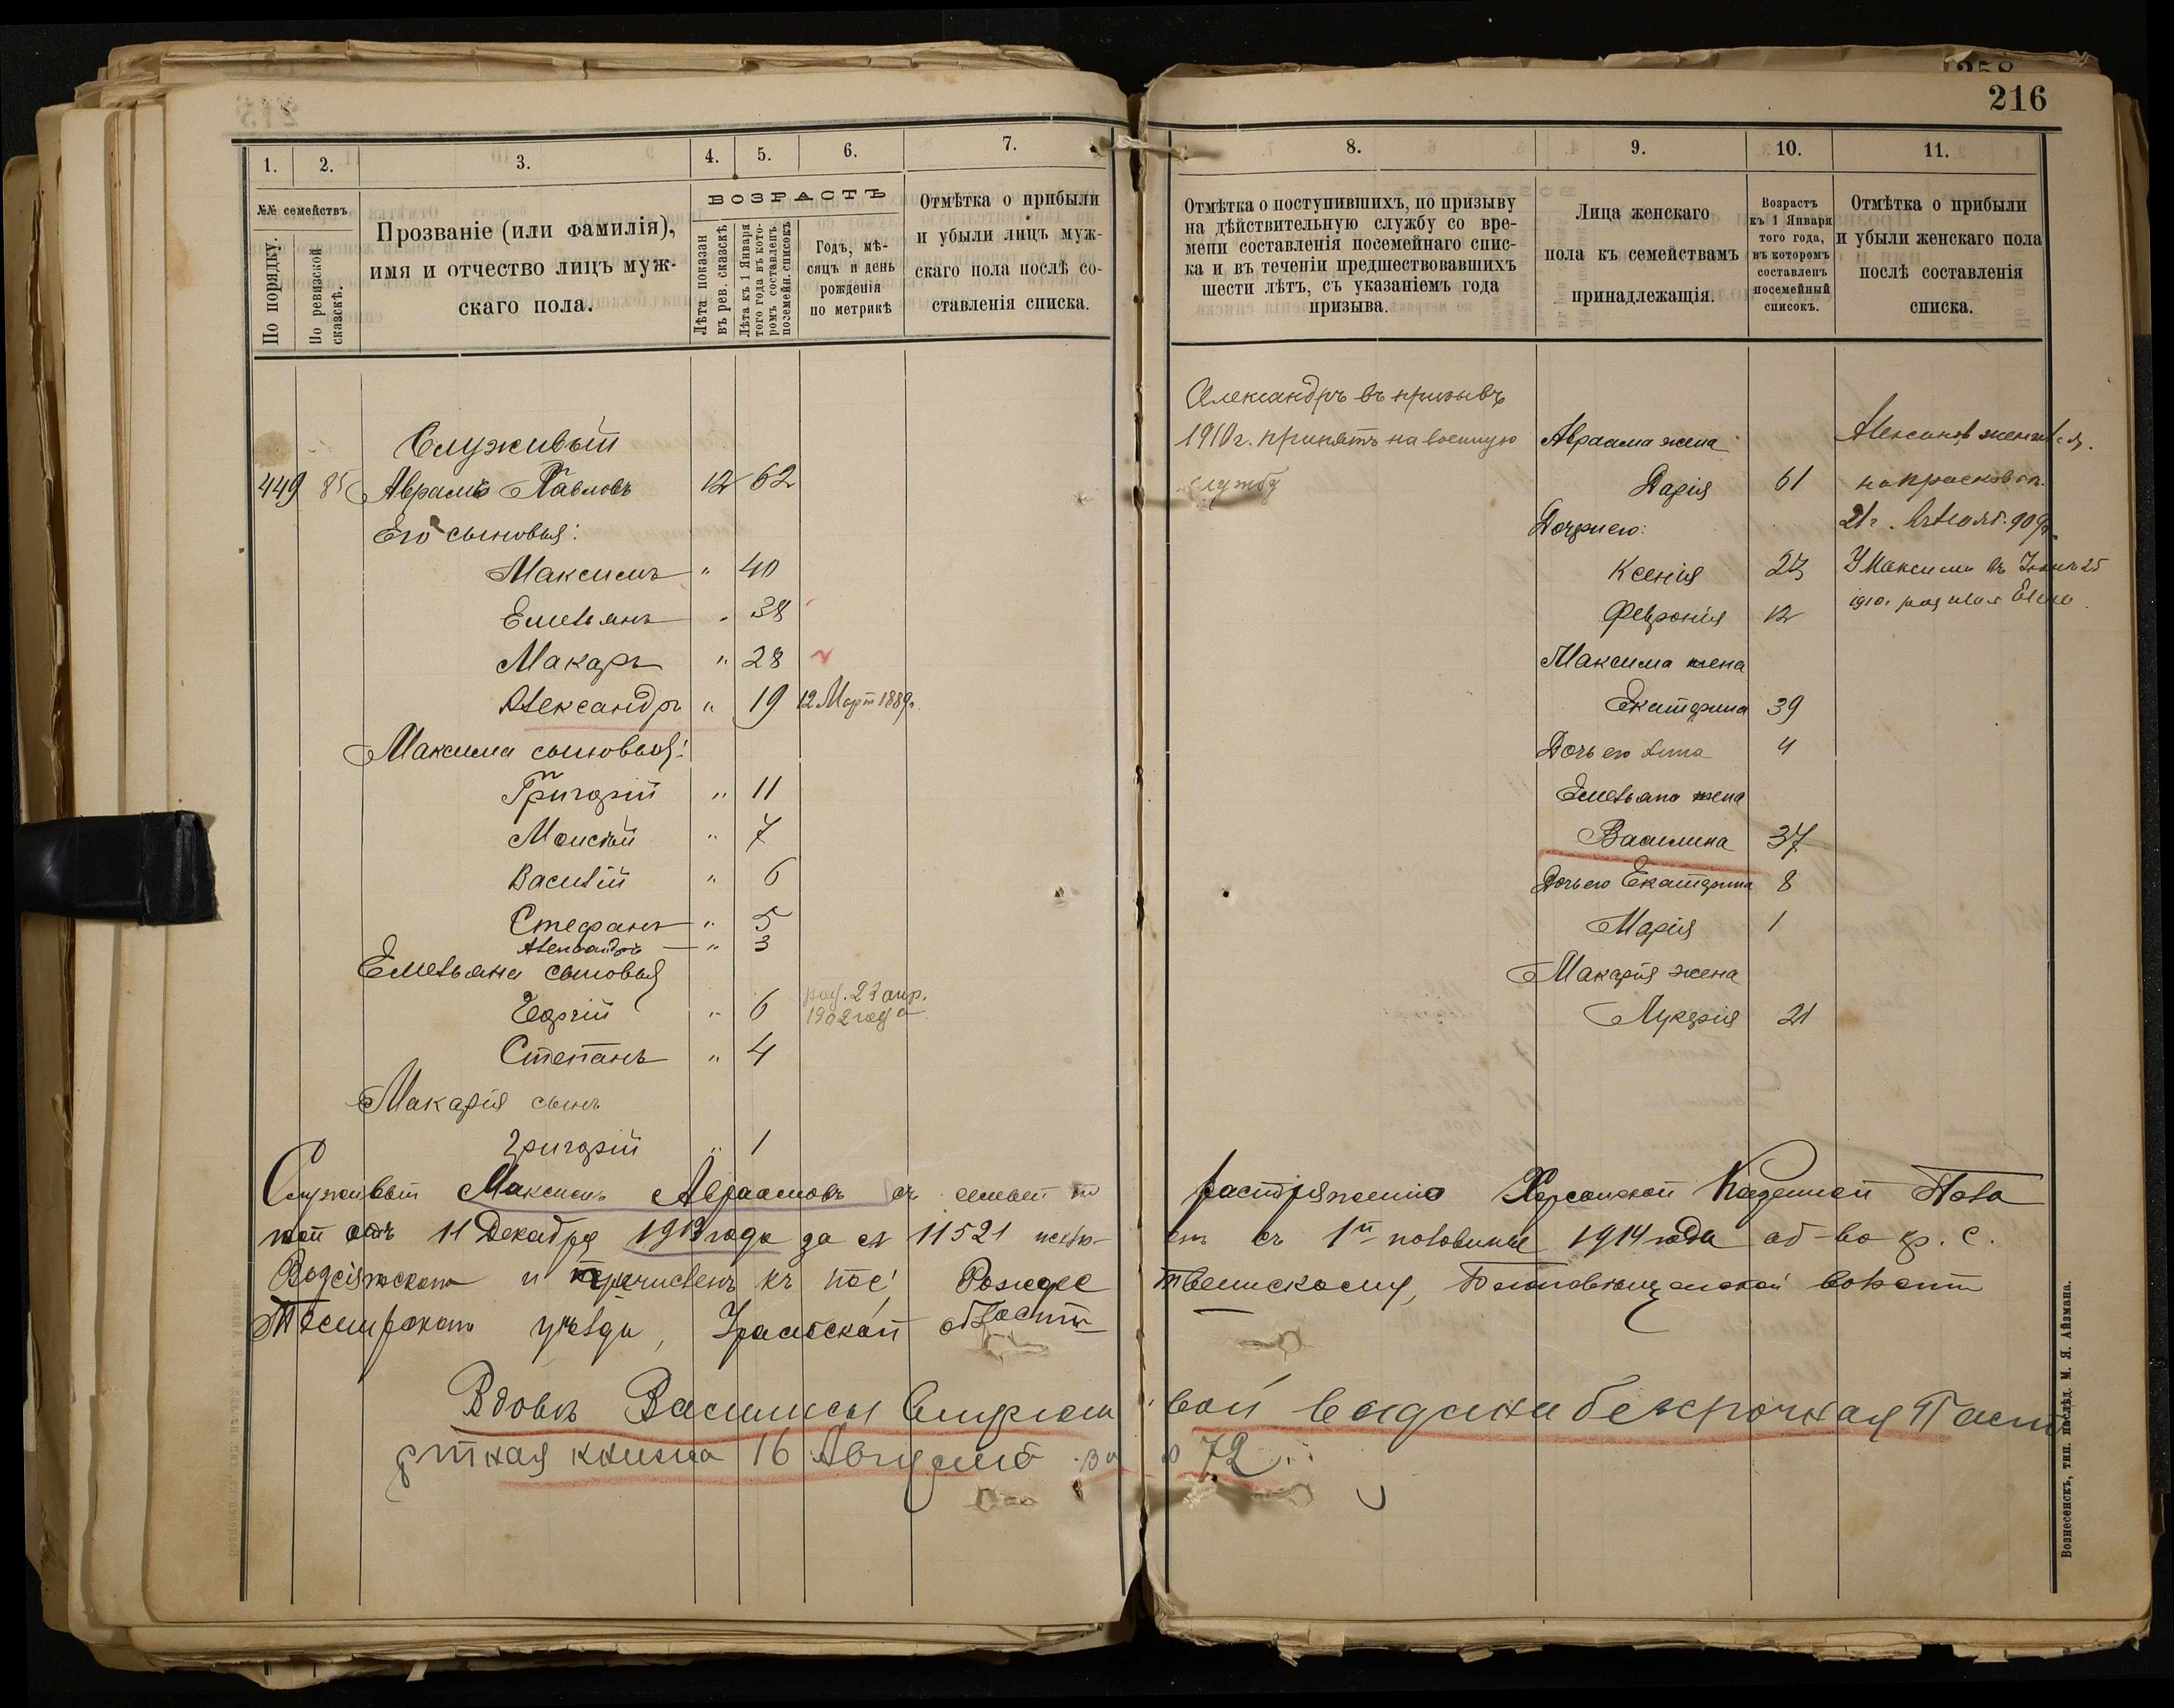 216
1. 2. 3. 4. 5. 6. 7.
№№ семействъ
По порядку.
По ревизской сказскѣ.
Прозваніе (или фамилія),
имя и отчество лицъ муж-
скаго пола.
ВОЗРАСТЪ
Лѣта показан
въ рев. сказскѣ
Лѣта къ 1 Января
того года въ кото-
ромъ составленъ
поземейн. списокъ
Годъ, мѣ-
сяцъ и день
рожденія
по метрикѣ
Отмѣтка о прибыли
и убыли лицъ муж-
скаго пола послѣ со-
ставленія списка.
Служивый
449 85 Авраамъ Павловъ 12 62
Его сыновья:
Максимъ " 40
Емельянъ " 38
Макаръ " 28
Александръ " 19 12 Март 1889г.
Максима сыновья:
Григорій " 11
Моисѣй " 7
Василій " 6
Стефанъ " 5
Александръ " 3
Емельяна сыновья
Георгій " 6 род. 23 апр.
1902 года
Степанъ " 4
Макарія сынъ
Григорій " 1
8. 9. 10. 11.
Отмѣтка о поступившихъ, по призыву
на дѣйствительную службу со вре-
мени составленія посемейнаго спис-
ка и въ теченіи предшествовавшихъ
шести лѣтъ, съ указаніемъ года
призыва.
Лица женскаго
пола къ семействамъ
принадлежащія.
Возрастъ
къ 1 Января
того года,
въ которомъ
составленъ
посемейный
списокъ.
Отмѣтка о прибыли
и убыли женскаго пола
послѣ составленія
списка.
Александръ въ призывъ
1910 г. принятъ на военную
службу
Авраама жена
Дарія 61
Дочери его:
Ксенія 23
Февронія 12
Максима жена
Екатерина 39
Дочь его Анна 4
Емельяна жена
Василиса 37
Дочь его Екатерина 8
Марія 1
Макарія жена
Лукерія 21
Александ. женился
на Прасков
21 г. 909г.
У Максима въ 25
1910г. родилась Елена
Служивый Максимъ Авраамовъ съ семьей
распоряженію Херсонской Казенной Пала
той отъ 11 Декабря 1913 года за № 11521 исклю-
ем съ 1й половины 1914 года об-ва
и перечисленъ къ пос. Рождес
твенскому, волости
Темирскаго уѣзда, Уральской области
Вдовѣ Василисы вой выдана безсрочная Паспо
ртная книжка 16 Августа за № 72
Вознесенскъ, тип. наслѣд. М. Я. Айзмана.